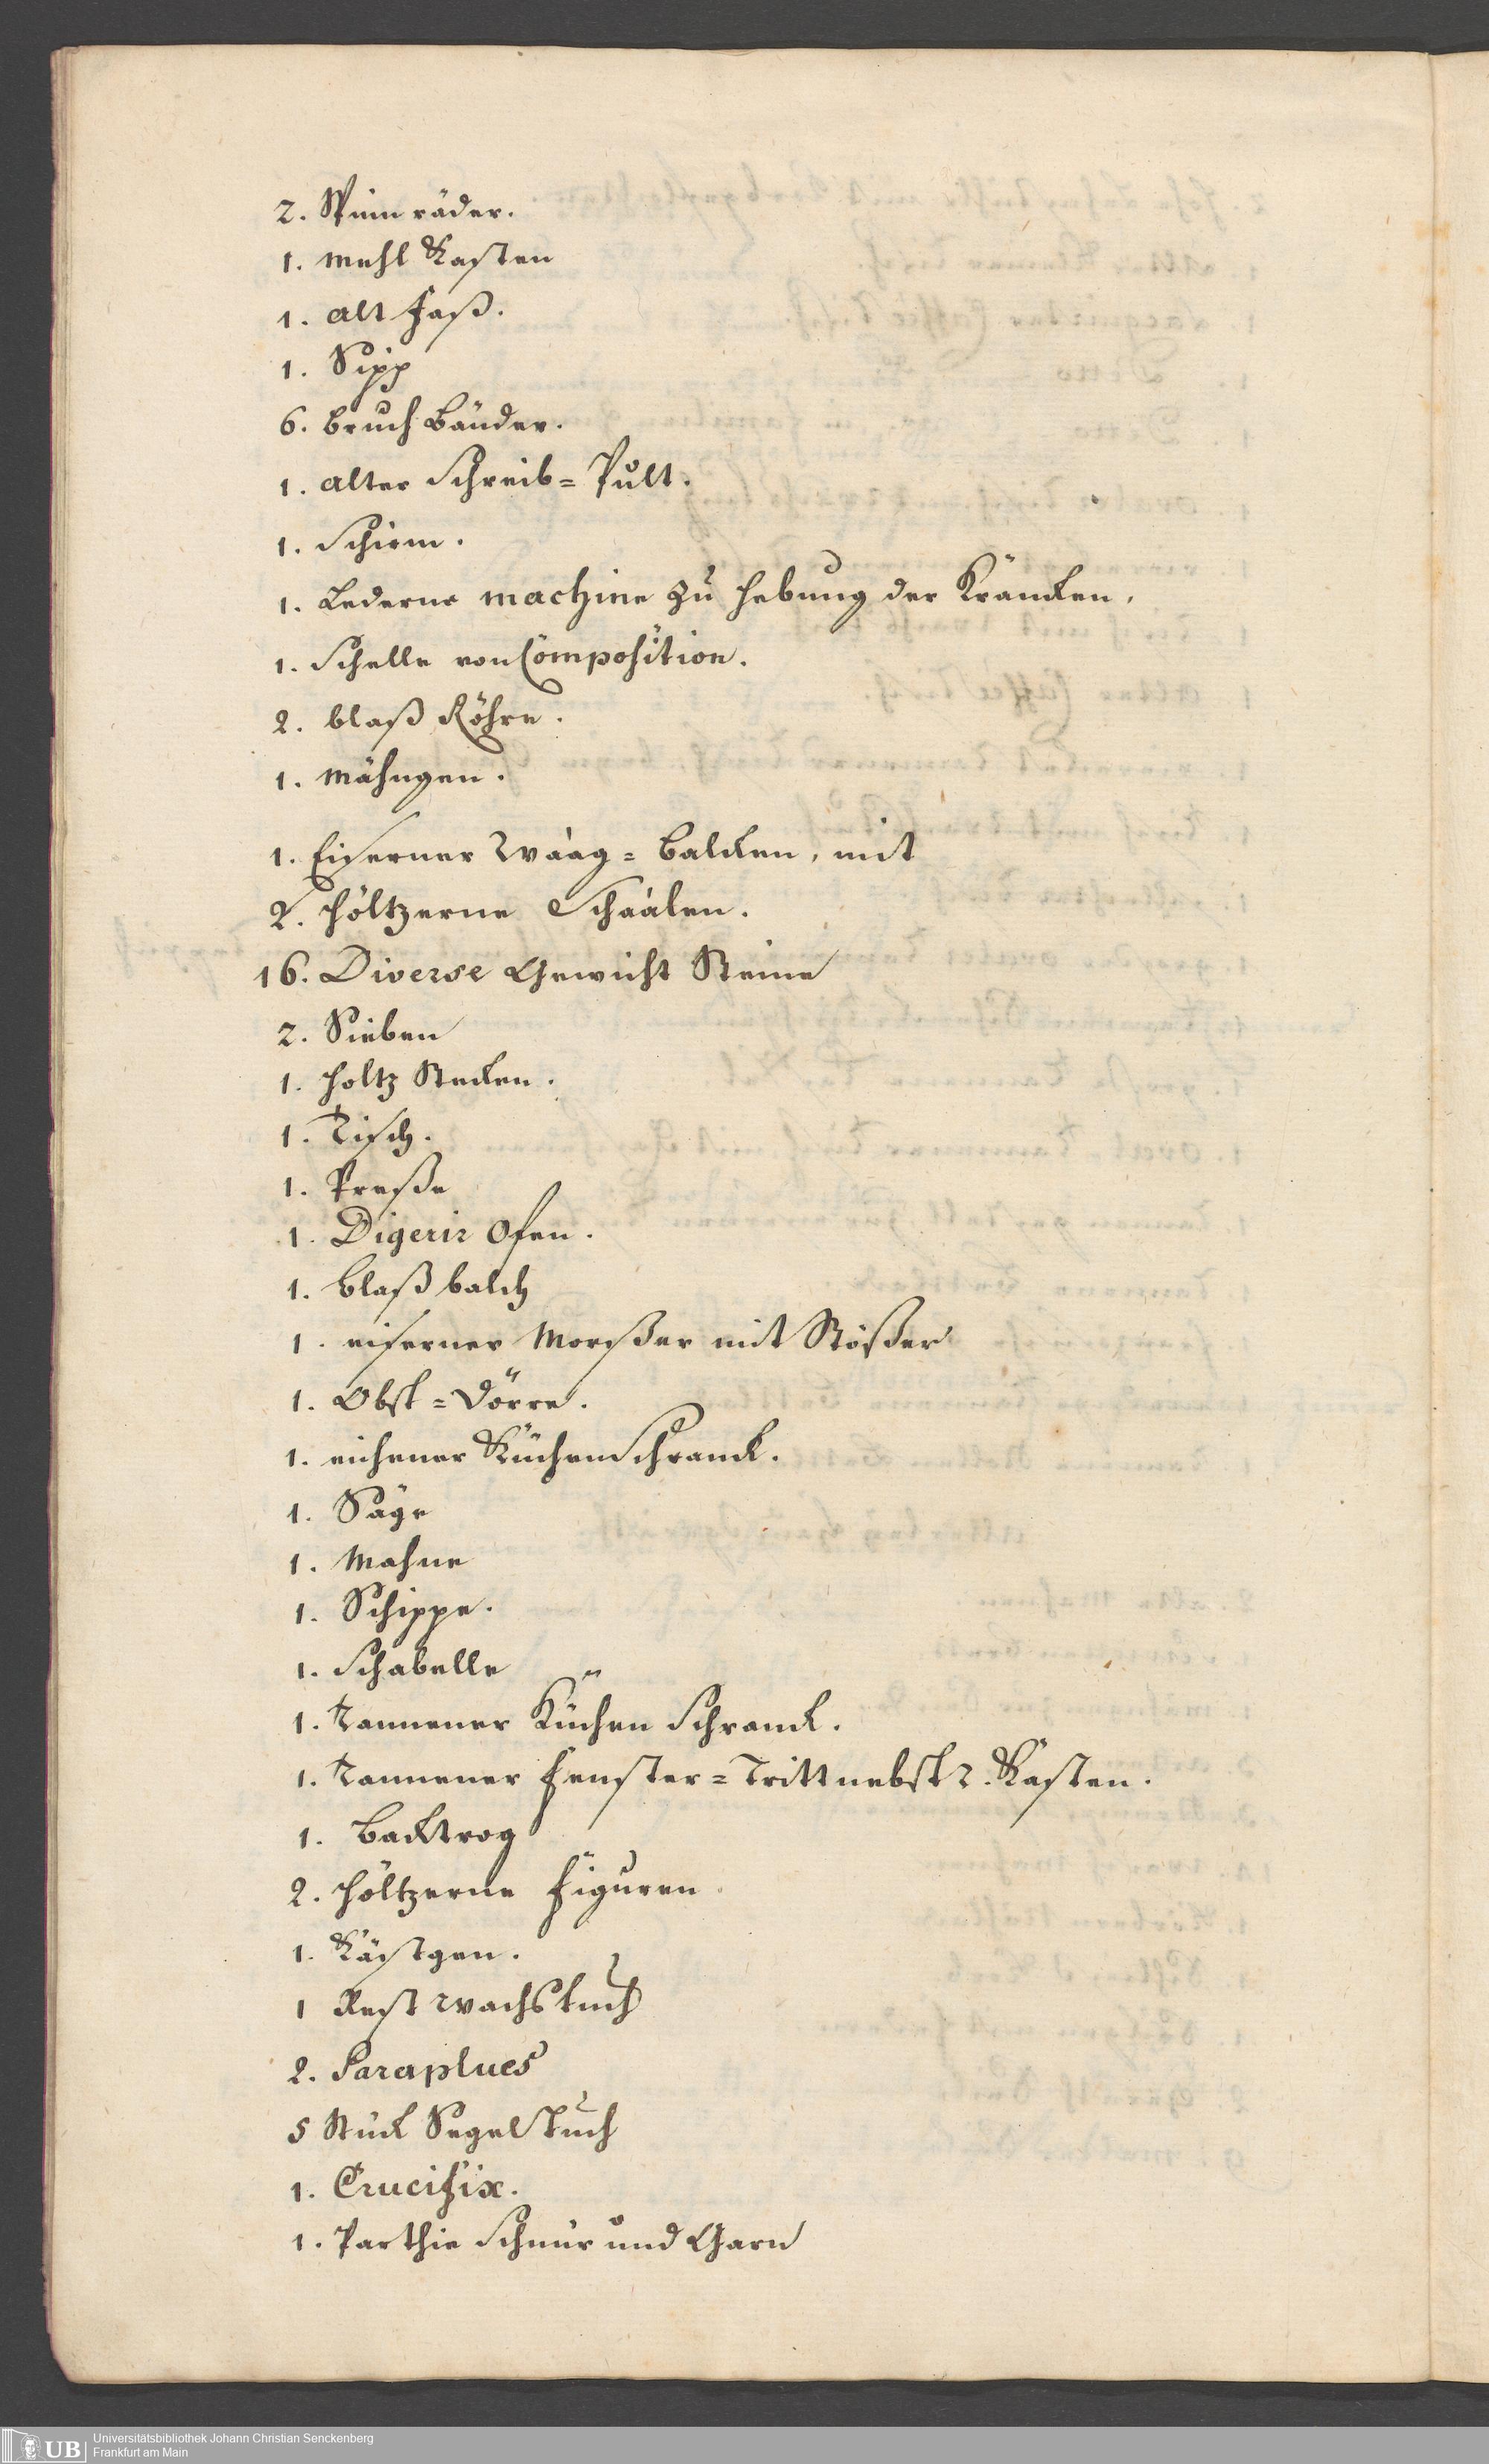 2. Spinn räder.
1. Mehl Kasten
1. alt Faß.
1. Sipp
6. Bruch Bänder.
1. alter Schreib= Pult.
1. Schirm.
1. Lederne machine zu Hebung der Krancken.
1. Schelle von Composition.
2. blaß Röhre.
1. Mähngen.
1. Eiserner Waag= Balcken, mit
2. Höltzerne Schaalen.
16. Diverse Gewicht Steine
2. Sieben
1. Holtz Stecken.
1. Tisch.
1. Preße
1. Digerir Ofen.
1. Blaß balch
1. eiserner Morßer mit Stößer
1. Obst= Dörre.
1. eichener Küchen Schranck.
1. Säge
1. Mahne
1. Schippe.
1. Schabelle
1. Tannener Küchen Schranck.
1. Tannener Fenster= Tritt nebst 2. Kästen.
1. Backtrog
2. Höltzerne Figuren
1. Kästgen.
1 Rest Wachstuch
2. Paraplues
5 Stück Segel Tuch
1. Crucifix.
1. Parthie Schnur und Garn
UB
Universitätsbibliothek Johann Christian Senckenberg
Frankfurt am Main